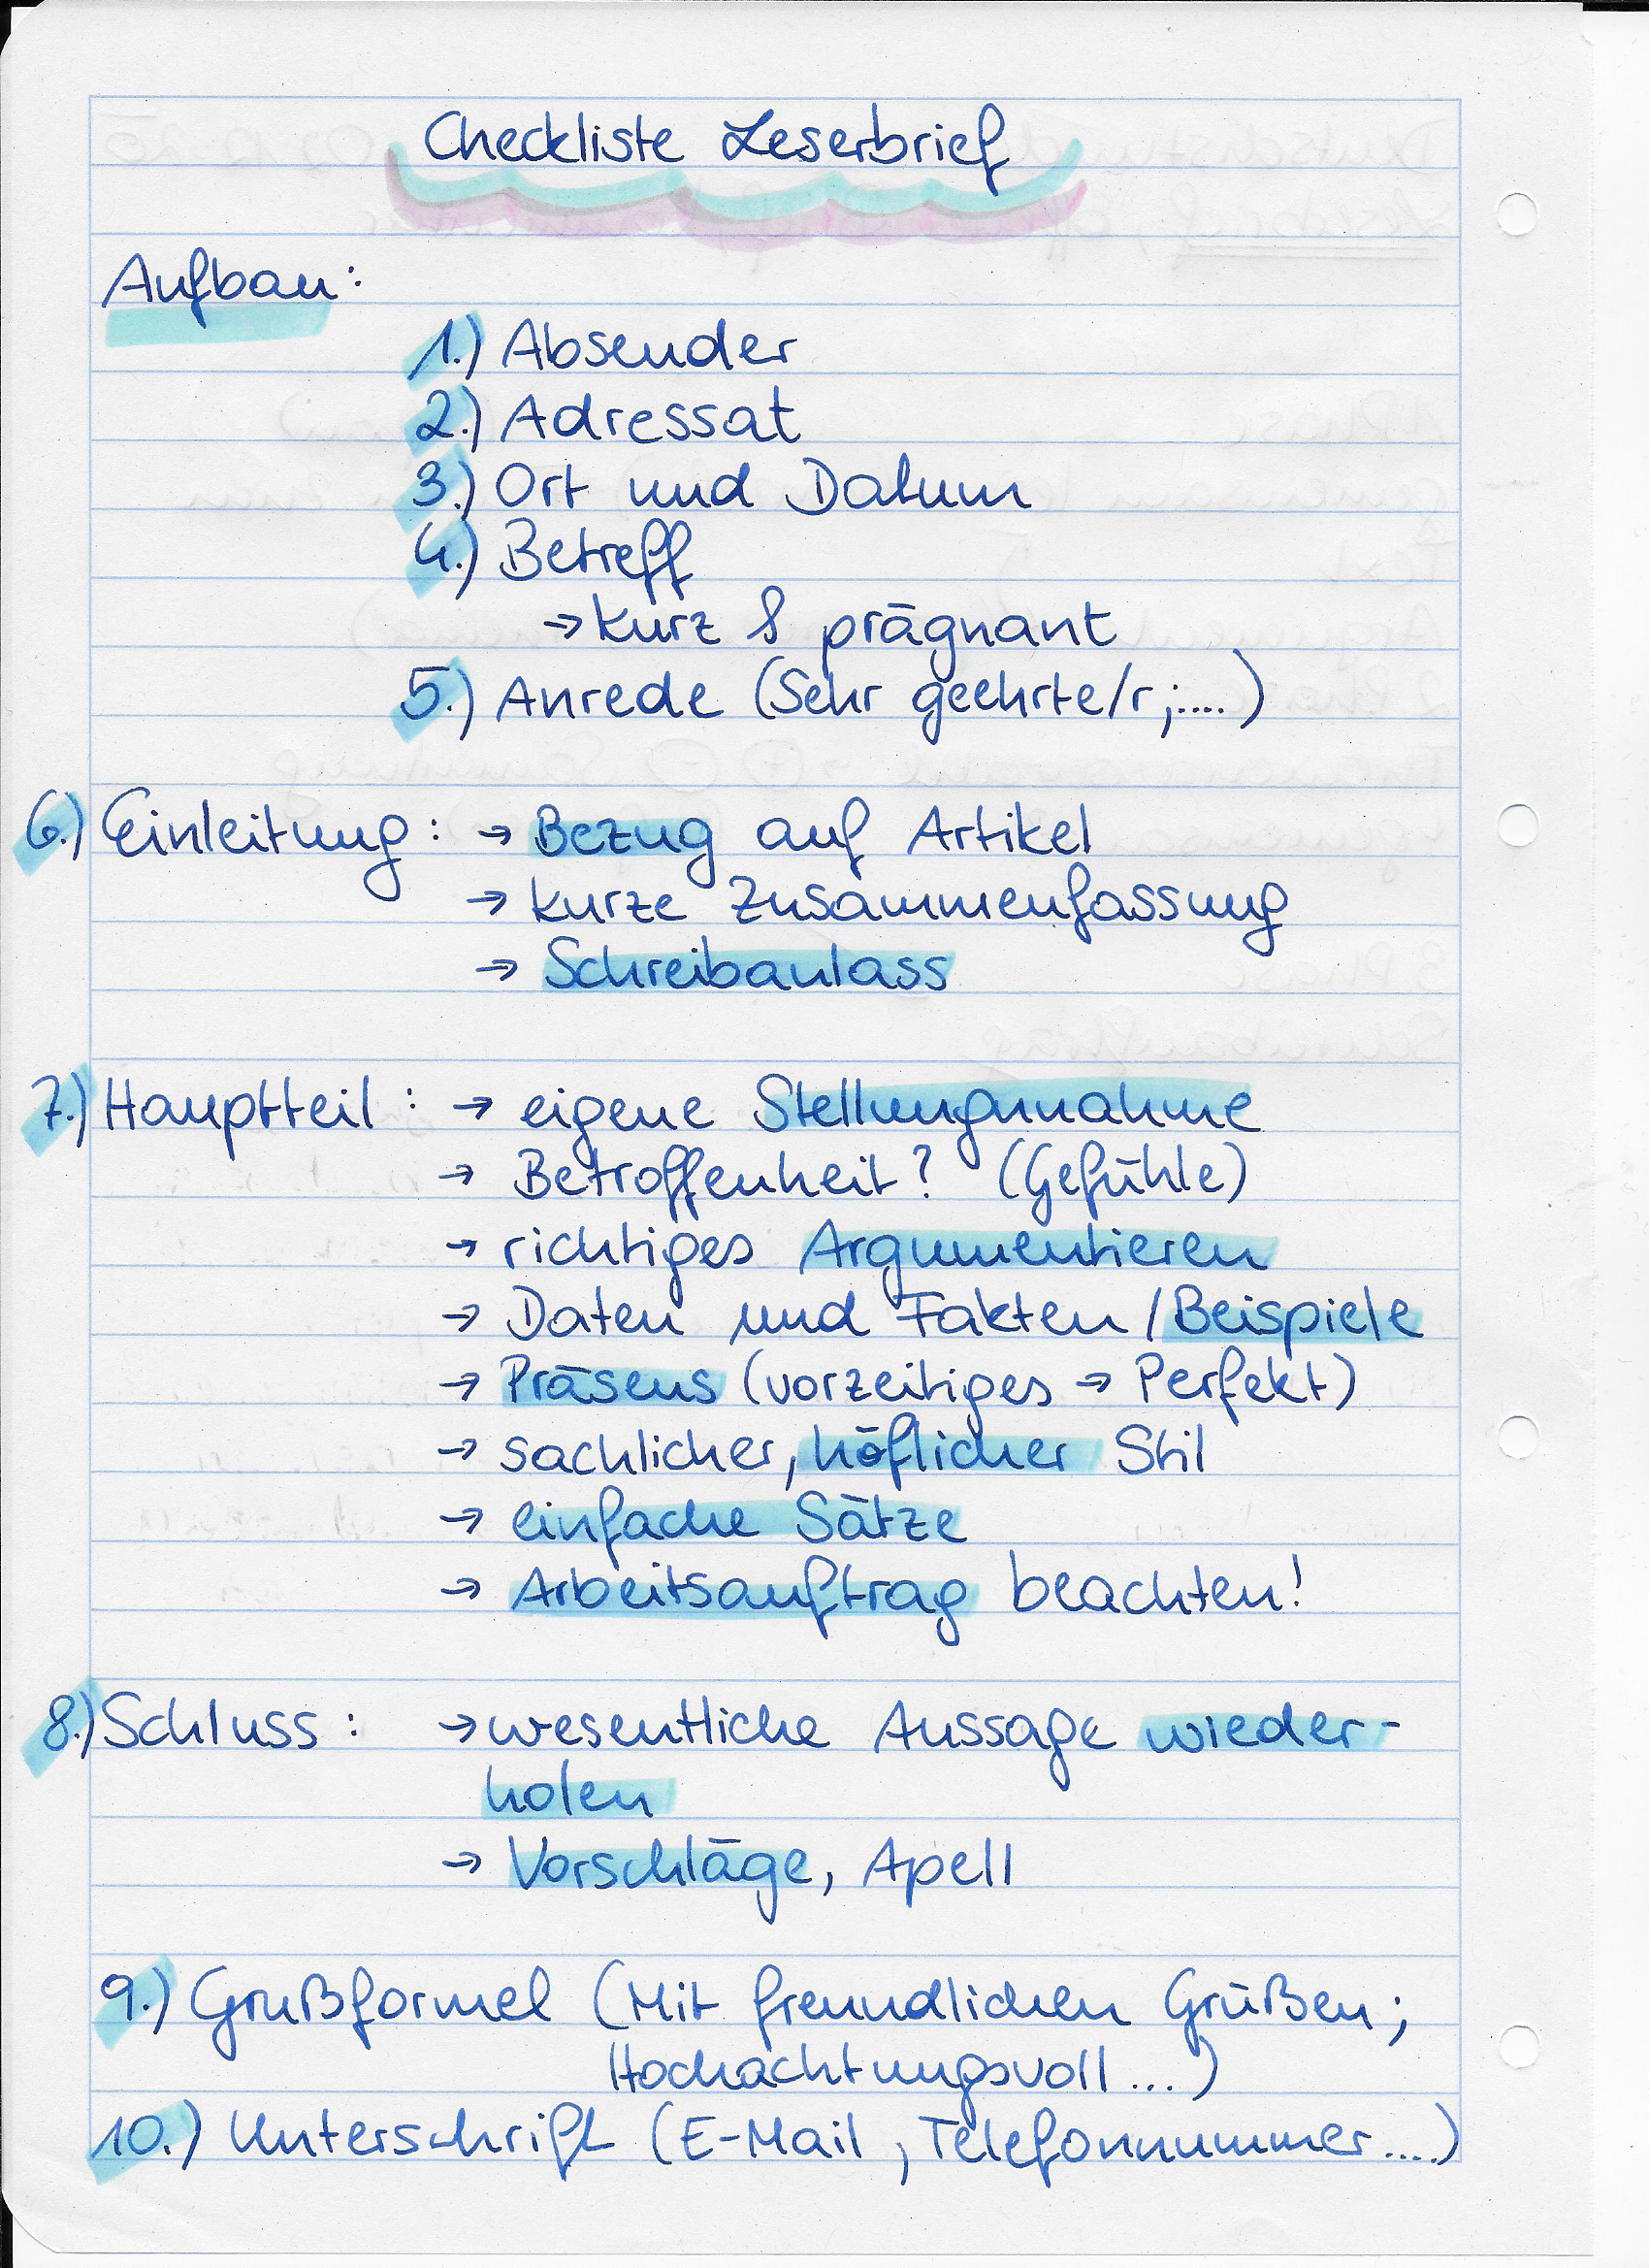 Checkliste Leserbrief
Aufbau:
1.) Absender
2.) Adressat
3.) Ort und Datum
4.) Betreff
→ kurz & prägnant
5.) Anrede (Sehr geehrte/r;....)
6.) Einleitung: → Bezug auf Artikel
→ kurze Zusammenfassung
→ Schreibanlass
7.) Hauptteil: → eigene Stellungnahme
→ Betroffenheit? (Gefühle)
→ richtiges Argumentieren
→ Daten und Fakten / Beispiele
→ Präsens (vorzeitiges → Perfekt)
→ sachlicher, höflicher Stil
→ einfache Sätze
→ Arbeitsauftrag beachten!
8.) Schluss: → wesentliche Aussage wieder-
holen
→ Vorschläge, Apell
9.) Grußformel (Mit freundlichen Grüßen;
Hochachtungsvoll ...)
10.) Unterschrift (E-Mail, Telefonnummer....)